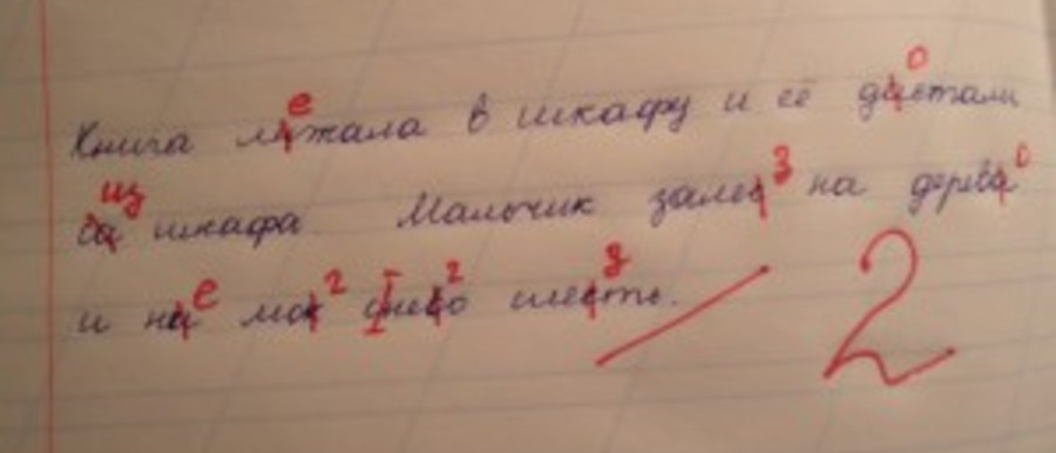 е о
Книга лижала в шкафу и её дастали
из з о
са шкафа Мальчик залес на дерева
е г г з
и ни мок снево слесть.
2